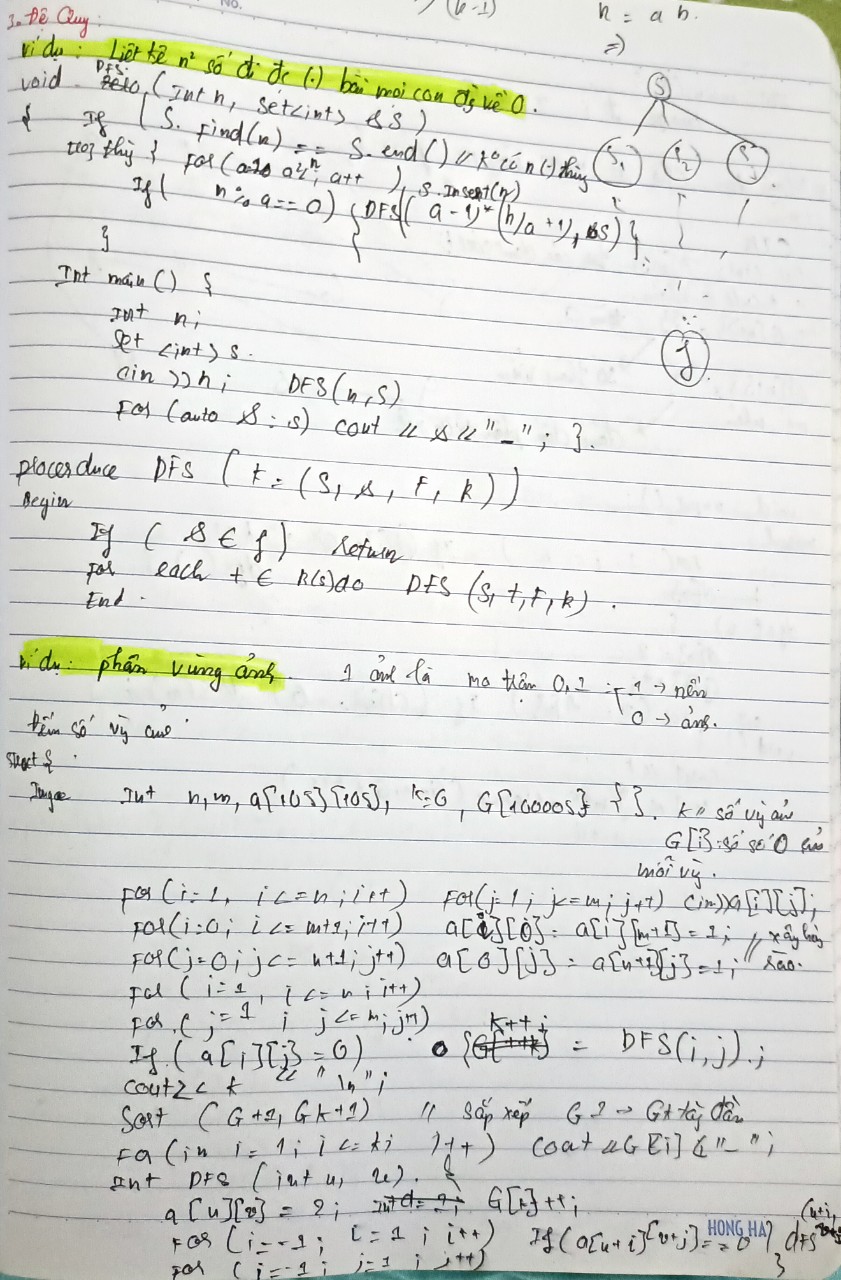 (b-1)
n = a b.
=)
3. Đê Quy:
ví dụ: Liệt kê n² số đi đc (.) bài mọi con đg về 0.
S
void DFS (Int n, set<int> &S)
{ If (S. Find(n) == S. end() // k° có n (.) thùy
S1 S2 S
For ( a<n; a++ ) S.Insert(n)
If( n % a == 0) {DFS( (a-1)*(n/a +1), S) }
}
Int main() {
Int n;
Set <int> s.
f
Cin >>n; DFS(n,S)
For (auto s : s) cout << s << "_"; }.
procerduce DFS ( t = (S, s, F, R))
Begin
If ( s ∈ f) return
For each t ∈ R(s) do DFS (S, t, F, R).
End.
ví dụ: phân vùng ảnh. 1 ảnh là ma trận 0,1 : 1 → nền
0 → ảnh.
Đếm số vg
Struct {
Image Int n, m, a[105][105], k=0, G[10000S] {}. k // số vg ảnh
G[i]: số số 0 của
mỗi vg.
For (i=1, i<=n; i++) For(j=1; j<=m; j++) Cin>>a[i][j];
For(i=0; i<=m+1; i++) a[i][0] = a[i][m+1] = 1; // xây hàng
For(j=0; j<= n+1; j++) a[0][j] = a[n+1][j] = 1; // rào.
For (i=1, i<=n; i++)
For (j=1 ; j<=m; j++)
k++;
If ( a[i][j] = 0) { = DFS(i,j).;
cout << k << "\n";
Sort (G+1, G k+1) // Sắp xếp G 1 → Gk tăg dần
Fo (in i=1; i<=k; i++) Cout << G[i] << "_";
Int DFS (int u, v). {
a[u][v] = 2; G[k]++;
For (i=-1; i=1; i++) If(a[u+i][v+j]==0) dfs (u+i, v+j)
For (j=-1; j=1; j++) }
HONG HA